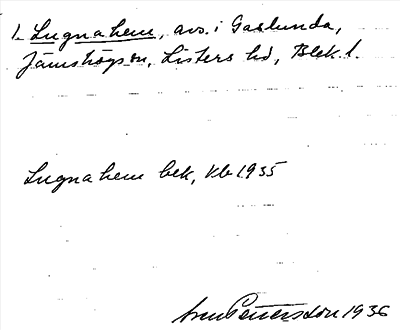 1. Lugnahem, avs. i Gaslunda,
Jämshögs sn, Listers hd, Blek. l.
Lugnahem bek, Kb 1935
Pettersson 1936